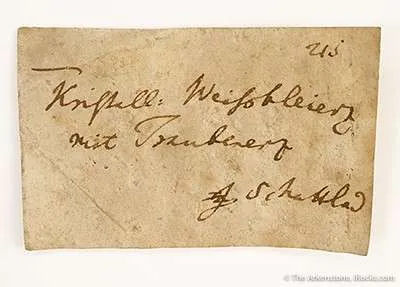 215
Kristall: Weissbleierz
mit Traubenerz
© The Arkenstone, iRocks.com